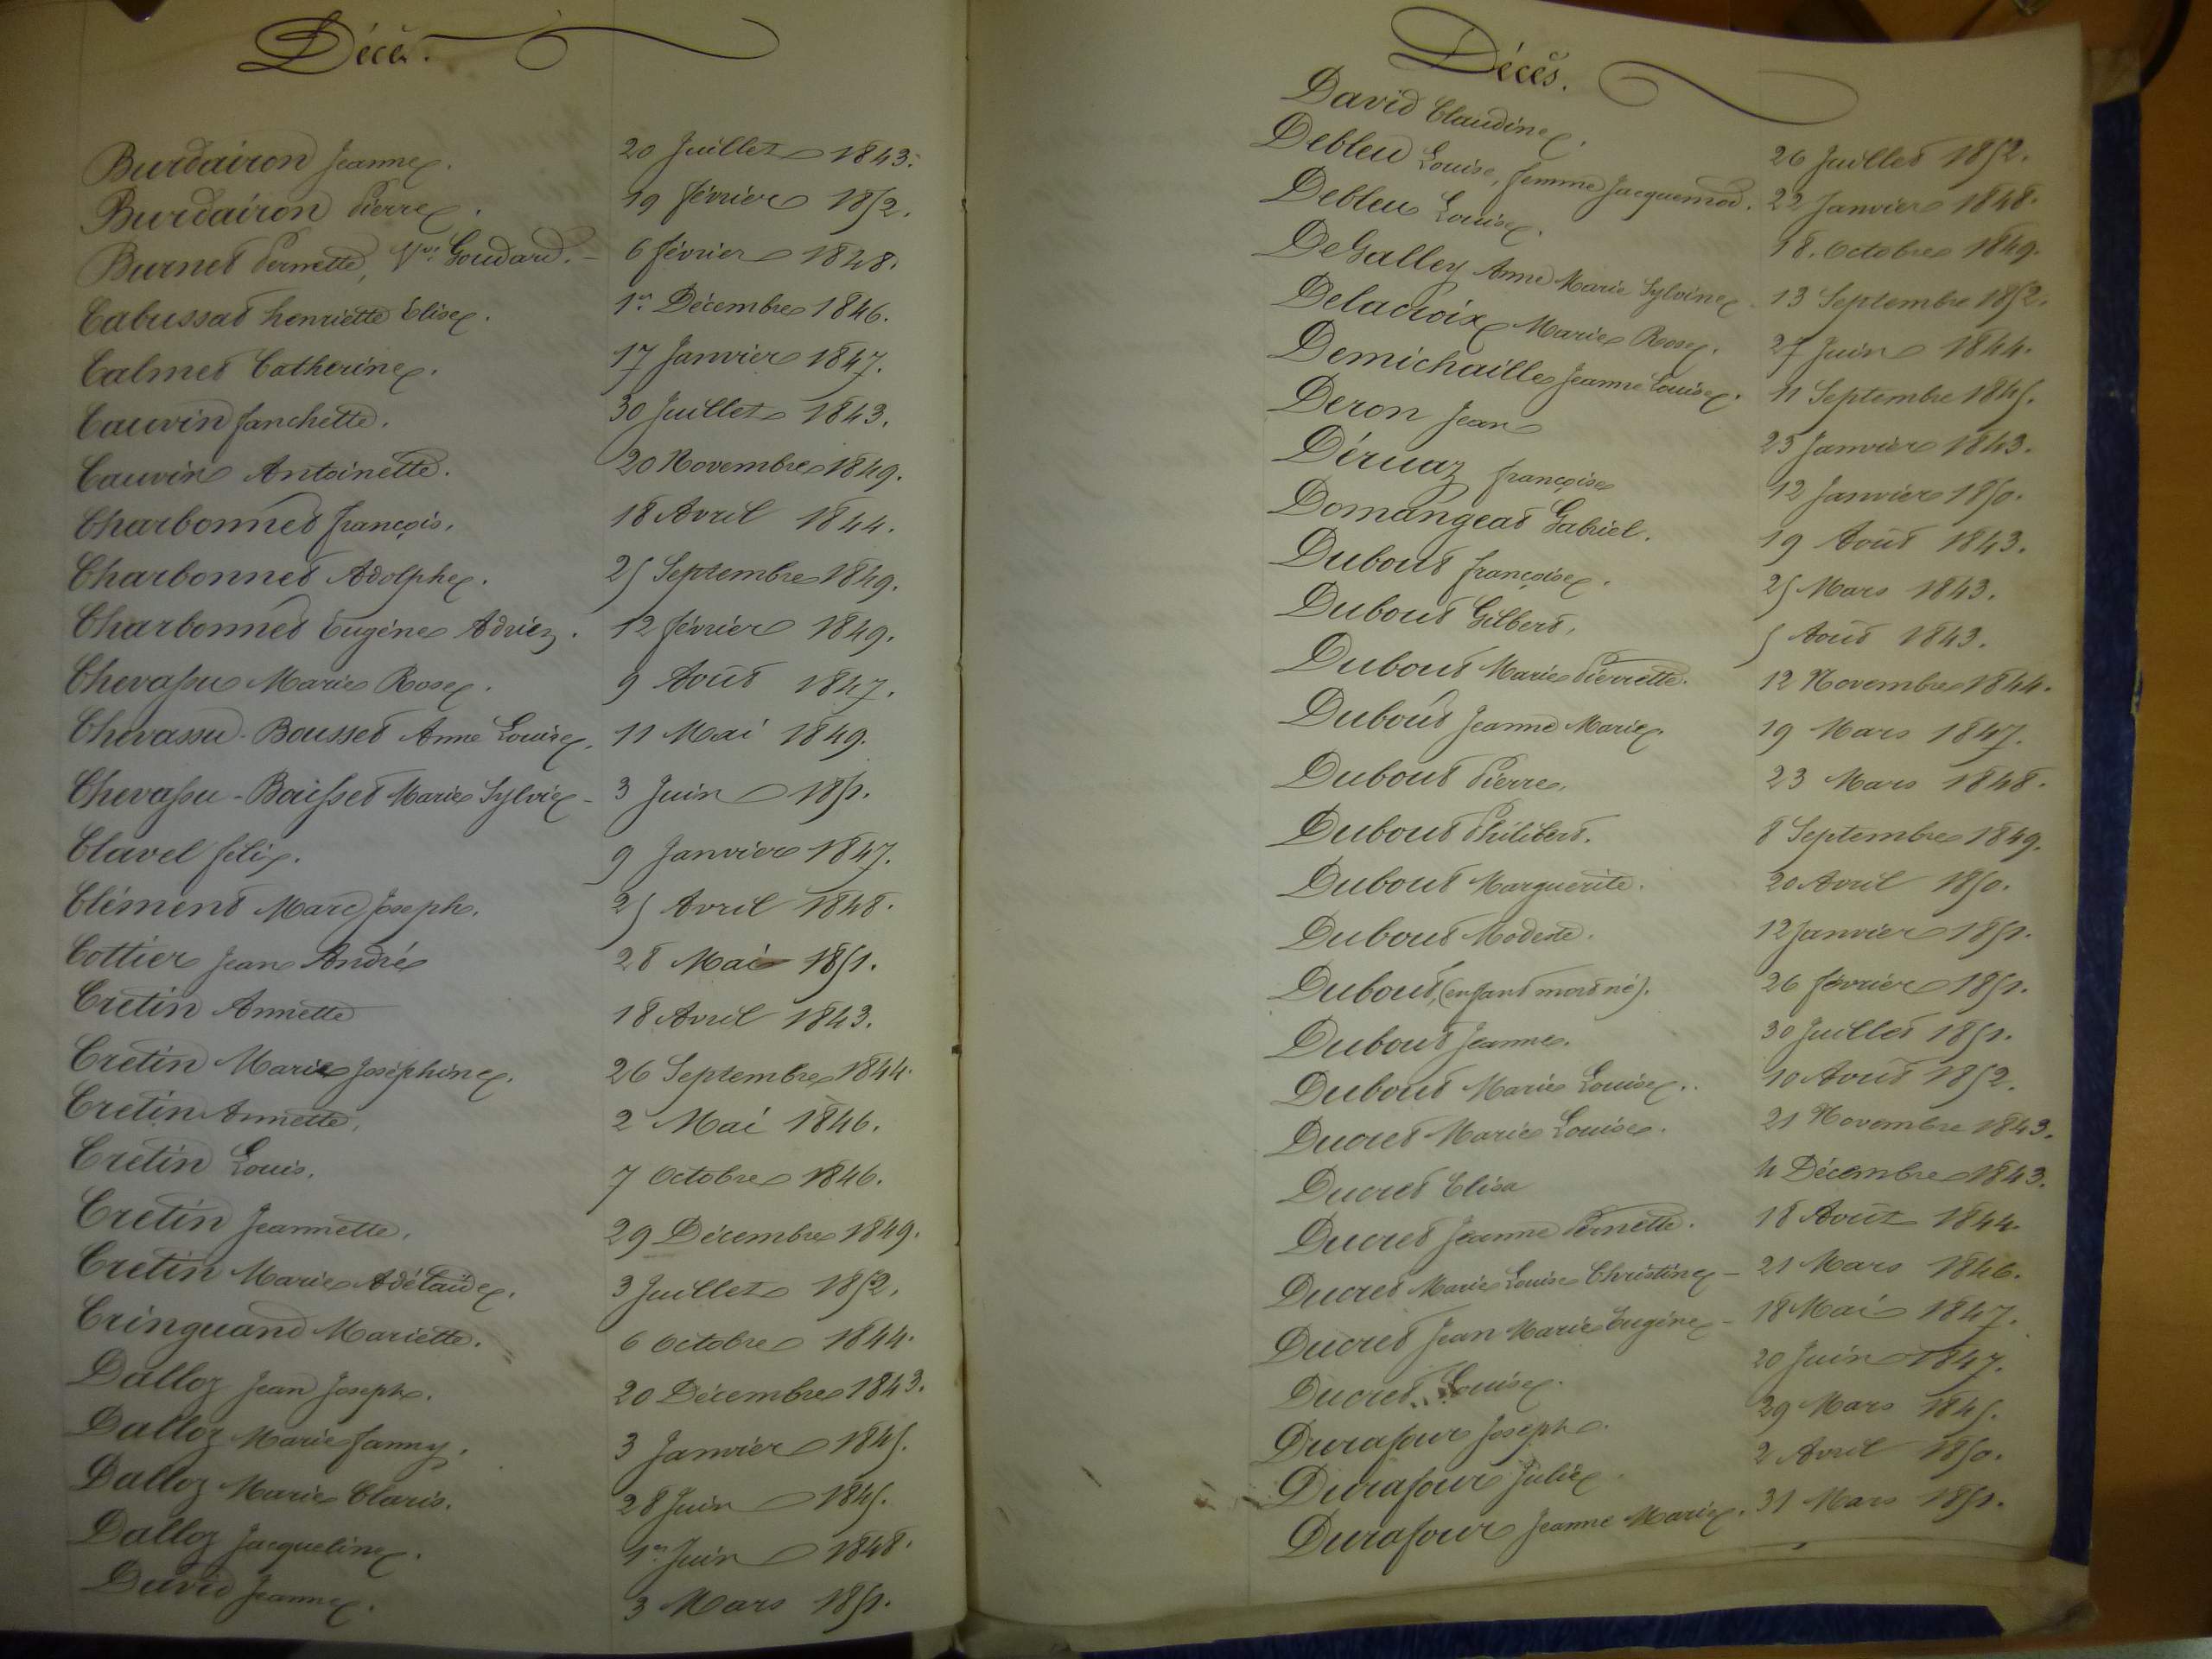 Décès.
Burdairon Jeanne. 20 Juillet 1843.
Burdairon Pierre. 19 février 1852.
Burnet Pernette, Vve Goudard. – 6 février 1848.
Cabussat henriette Élise. 1er Décembre 1846.
Calmet Catherine. 17 Janvier 1847.
Cauvin fanchette. 30 Juillet 1843.
Cauvin Antoinette. 20 Novembre 1849.
Charbonnet françois. 18 Avril 1844.
Charbonnet Adolphe. 25 Septembre 1849.
Charbonnet Eugène Adrien. 12 février 1849.
Chevassu Marie Rose. 9 Août 1847.
Chevassu-Bousset Anne Louise. 11 Mai 1849.
Chevassu-Boisset Marie Sylvie – 3 Juin 1851.
Clavel félix. 9 Janvier 1847.
Clément Marc Joseph. 25 Avril 1848.
Cottier Jean André 28 Mai 1851.
Cretin Annette 18 Avril 1843.
Cretin Marie Joséphine. 26 Septembre 1844.
Cretin Annette. 2 Mai 1846.
Cretin Louis. 7 Octobre 1846.
Cretin Jeannette. 29 Décembre 1849.
Cretin Marie Adélaïde. 3 Juillet 1852.
Cringuand Mariette. 6 Octobre 1844.
Dalloz Jean Joseph. 20 Décembre 1843.
Dalloz Marie fanny. 3 Janvier 1845.
Dalloz Marie Claris. 28 Juin 1845.
Dalloz Jacqueline. 1er Juin 1848.
David Jeanne. 3 Mars 1851.
Décès.
David Claudine. 26 Juillet 1852.
Debleu Louise, femme Jacquemod. 22 Janvier 1848.
Debleu Louise. 18. Octobre 1849.
DeGalley Anne Marie Sylvine. 13 Septembre 1852.
Delacroix Marie Rose. 27 Juin 1844.
Demichaille Jeanne Louise. 11 Septembre 1845.
Deron Jean 25 Janvier 1843.
Déruaz françoise 12 Janvier 1850.
Domangeat Gabriel. 19 Août 1843.
Dubout françoise. 25 Mars 1843.
Dubout Gilbert. 5 Août 1843.
Dubout Marie Pierrette. 12 Novembre 1844.
Dubout Jeanne Marie. 19 Mars 1847.
Dubout Pierre. 23 Mars 1848.
Dubout Philibert. 8 Septembre 1849.
Dubout Marguerite. 20 Avril 1850.
Dubout Modeste. 12 Janvier 1851.
Dubout, (enfant mort né). 26 février 1851.
Dubout Jeanne. 30 Juillet 1851.
Dubout Marie Louise. 10 Août 1852.
Ducret Marie Louise. 21 Novembre 1843.
Ducret Elisa 4 Décembre 1843.
Ducret Jeanne Pernette. 18 Août 1844.
Ducret Marie Louise Christine – 21 Mars 1846.
Ducret Jean Marie Eugène – 18 Mai 1847.
Ducret Louise. 20 Juin 1847.
Durafour Joseph. 29 Mars 1845.
Durafour Julie. 2 Avril 1850.
Durafour Jeanne Marie. 31 Mars 1851.